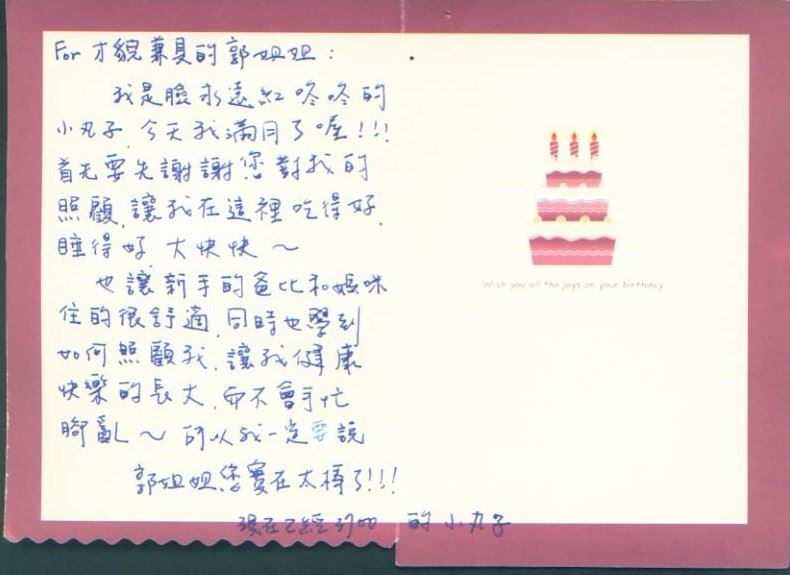 For 才貌兼具的郭姐姐:
我是臉永遠紅咚咚的
小丸子,今天我滿月了喔!!!
首先要先謝謝您對我的
照顧,讓我在這裡吃得好,
睡得好,大快快~
也讓新手的爸比和媽咪
住的很舒適,同時也學到
如何照顧我,讓我健康
快樂的長大,而不會手忙
腳亂~所以我一定要說
郭姐姐您實在太棒了!!!
現在已經3700 的小丸子
Wish you all the joys on your birthday.